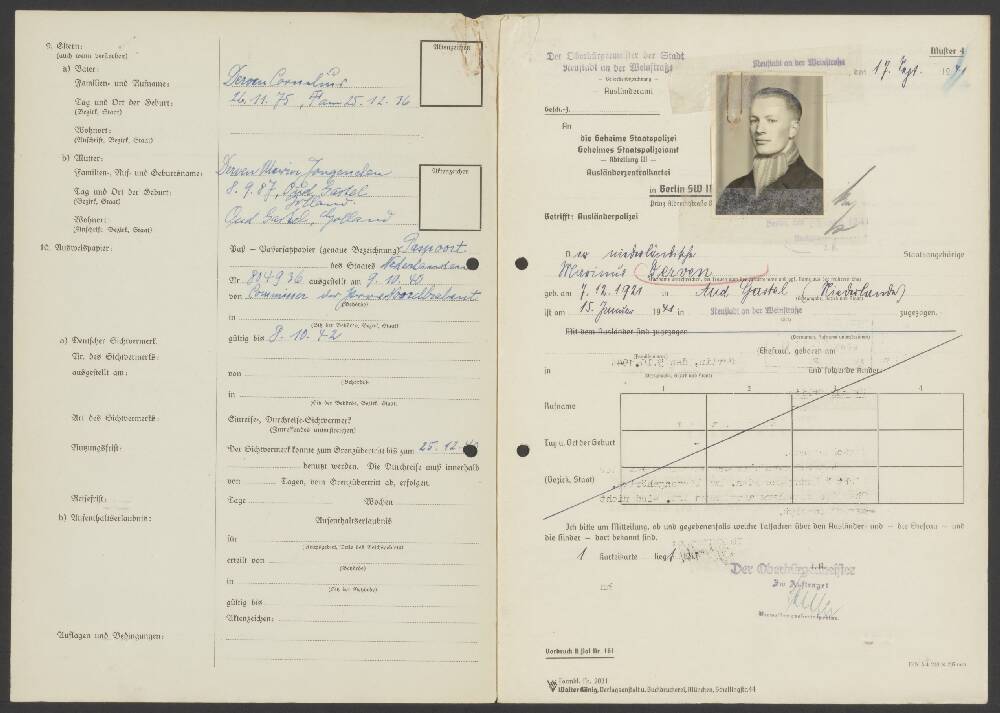 9. Eltern:
(auch wenn verstorben)
a) Vater:
Familien- und Rufname:
Derven Cornelius
Tag und Ort der Geburt:
(Bezirk, Staat)
26. 11. 75, 25. 12. 36
Wohnort:
(Anschrift, Bezirk, Staat)
Aktenzeichen
b) Mutter:
Familien-, Ruf- und Geburtsname:
Derven Maria Jongenelen
Tag und Ort der Geburt:
(Bezirk, Staat)
8. 9. 87, Oud Gastel
Holland
Wohnort:
(Anschrift, Bezirk, Staat)
Oud Gastel, Holland
Aktenzeichen
10. Ausweispapier:
Paß – Paßersatzpapier (genaue Bezeichnung) Paspoort
des Staates Nederlanden
Nr. 814936 ausgestellt am 9. 10. 40
von Commissar der Prov. Noordbrabant
(Behörde)
in
(Sitz der Behörde, Bezirk, Staat)
gültig bis 9. 10. 42
a) Deutscher Sichtvermerk
Nr. des Sichtvermerks:
ausgestellt am:
von
(Behörde)
in
(Sitz der Behörde, Bezirk, Staat)
Art des Sichtvermerks:
Einreise-, Durchreise-Sichtvermerk
(Zutreffendes unterstreichen)
Nutzungsfrist:
Der Sichtvermerk konnte zum Grenzübertritt bis zum 25. 12. 40
benutzt werden. Die Durchreise muß innerhalb
von Tagen, vom Grenzübertritt ab, erfolgen.
Reisefrist:
Tage Wochen
b) Aufenthaltserlaubnis:
Aufenthaltserlaubnis
für
(Reichsgebiet, Teile des Reichsgebiets)
erteilt von
(Behörde)
in
(Sitz der Behörde)
gültig bis
Aktenzeichen:
Auflagen und Bedingungen:
Muster 4
Der Oberbürgermeister der Stadt
Neustadt an der Weinstraße
Ausländeramt
Neustadt an der Weinstraße, den 17. Sept. 1941
Gesch.-Z.
An
die Geheime Staatspolizei
Geheimes Staatspolizeiamt
– Abteilung III –
Ausländerzentralkartei
in Berlin SW 11
Prinz Albrechtstraße 8
Betrifft: Ausländerpolizei
Der niederländische Staatsangehörige
Marinus Derven
geb. am 7. 12. 1921 in Aud Gastel (Niederlande)
ist am 15. Januar 1941 in Neustadt an der Weinstraße zugezogen.
Mit dem Ausländer sind zugezogen
(Ehefrau), geboren am
in und folgende Kinder:
1 2 3 4
Rufname
Tag u. Ort der Geburt
(Bezirk, Staat)
Ich bitte um Mitteilung, ob und gegebenenfalls welche Tatsachen über den Ausländer und – die Ehefrau – und
die Kinder – dort bekannt sind.
1 Karteikarte liegt
Der Oberbürgermeister
Im Auftrage:
Vordruck A Pol Nr. 161
Formbl. Nr. 2031
Walter König, Verlagsanstalt u. Buchdruckerei, München, Schellingstr. 44